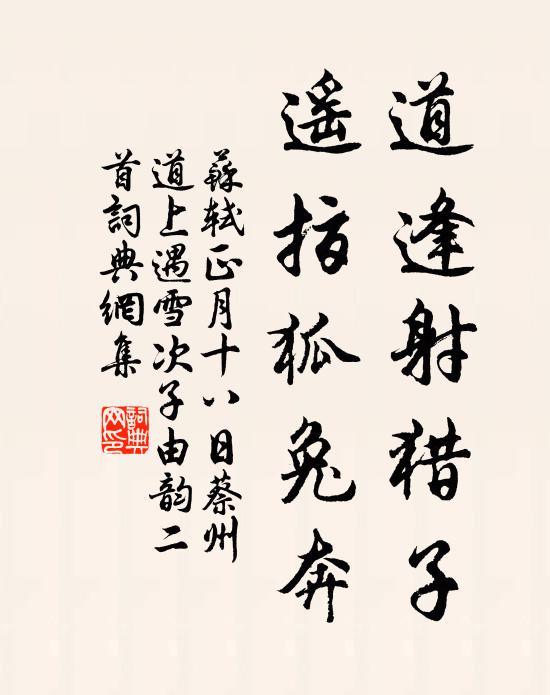 道逢射猎子
遥指狐兔奔
蘇轼正月十八日蔡州
道上遇雪次子由韵二
首詞典網集
詞典网印